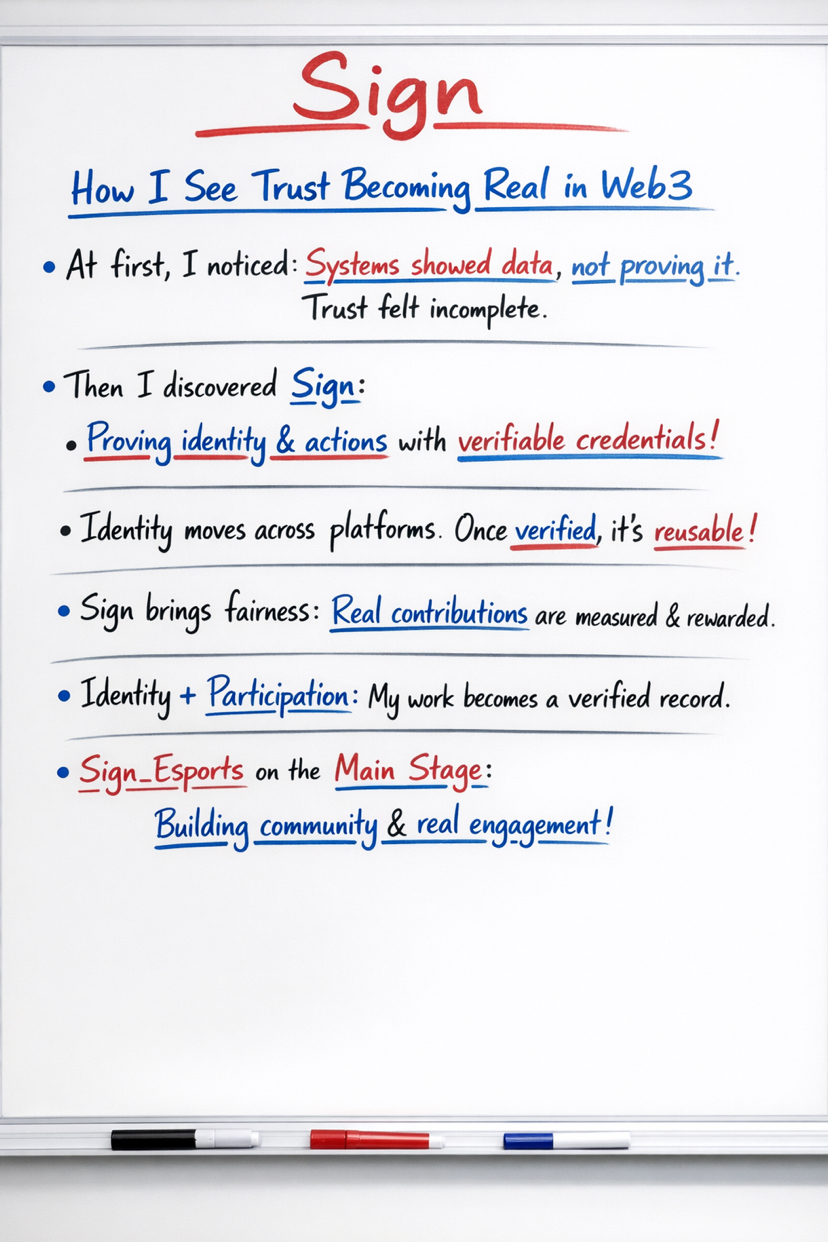 Sign
How I See Trust Becoming Real in Web3
• At first, I noticed: Systems showed data, not proving it.
Trust felt incomplete.
• Then I discovered Sign:
• Proving identity & actions with verifiable credentials!
• Identity moves across platforms. Once verified, it's reusable!
• Sign brings fairness: Real contributions are measured & rewarded.
• Identity + Participation: My work becomes a verified record.
• Sign_Esports on the Main Stage:
Building community & real engagement!